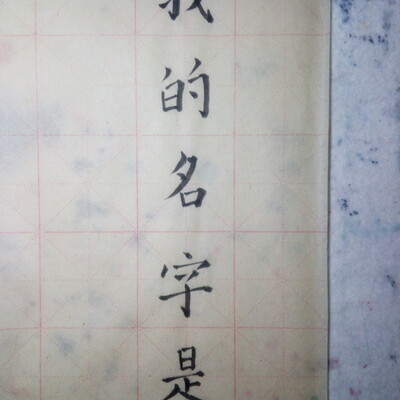 我的名字是